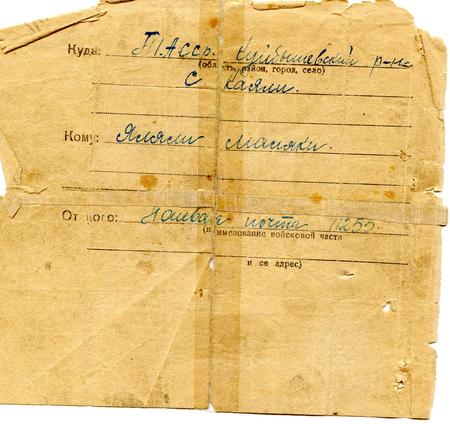 Куда: ТАССР. Куйбышевский р-н
(область, район, город, село)
с Каяли.
Кому: Яляли Маняки.
От кого: Полевая почта 11255.
(наименование войсковой части
и ее адрес)